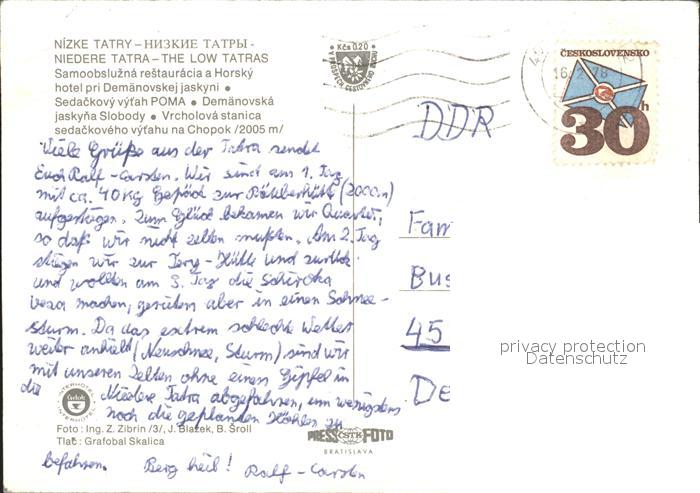 NÍZKE TATRY – НИЗКИЕ ТАТРЫ -
NIEDERE TATRA – THE LOW TATRAS
Samoobslužná reštaurácia a Horský
hotel pri Demänovskej jaskyni •
Sedačkový výťah POMA • Demänovská
jaskyňa Slobody • Vrcholová stanica
sedačkového výťahu na Chopok /2005 m/
Viele Grüße aus der Tatra sendet
Euch Ralf-Carsten. Wir sind am 1. Tag
mit ca. 40 kg Gepäck zur (2000m)
aufgestiegen. Zum Glück bekamen wir Quartier,
so daß wir nicht zelten mußten. Am 2. Tag
stiegen wir zur Tery-Hütte und zurück
und wollten am 3. Tag die Schiroka
veza machen, gerieten aber in einen Schnee-
sturm. Da das extrem schlechte Wetter
weiter anhielt (Neuschnee, Sturm) sind wir
mit unseren Zelten ohne einen Gipfel in
die Niedere Tatra abgefahren, um wenigstens
noch die geplanten Höhlen zu
befahren. Berg heil! Ralf-Carsten
INTERHOTEL
INTERHOTEL
Foto : Ing. Z. Zibrin /3/, J. Blažek, B. Šroll
Tlač : Grafobal Skalica
Kčs 0.20
PRESS ČSTK FOTO
BRATISLAVA
ČESKOSLOVENSKO
30 h
DDR
Fam
Bus
45
De
privacy protection
Datenschutz